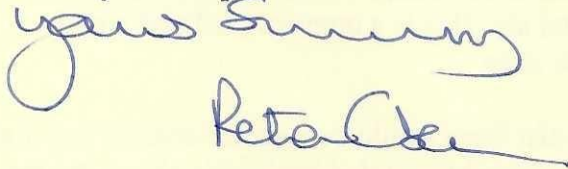 Yours Sincerely
Peter